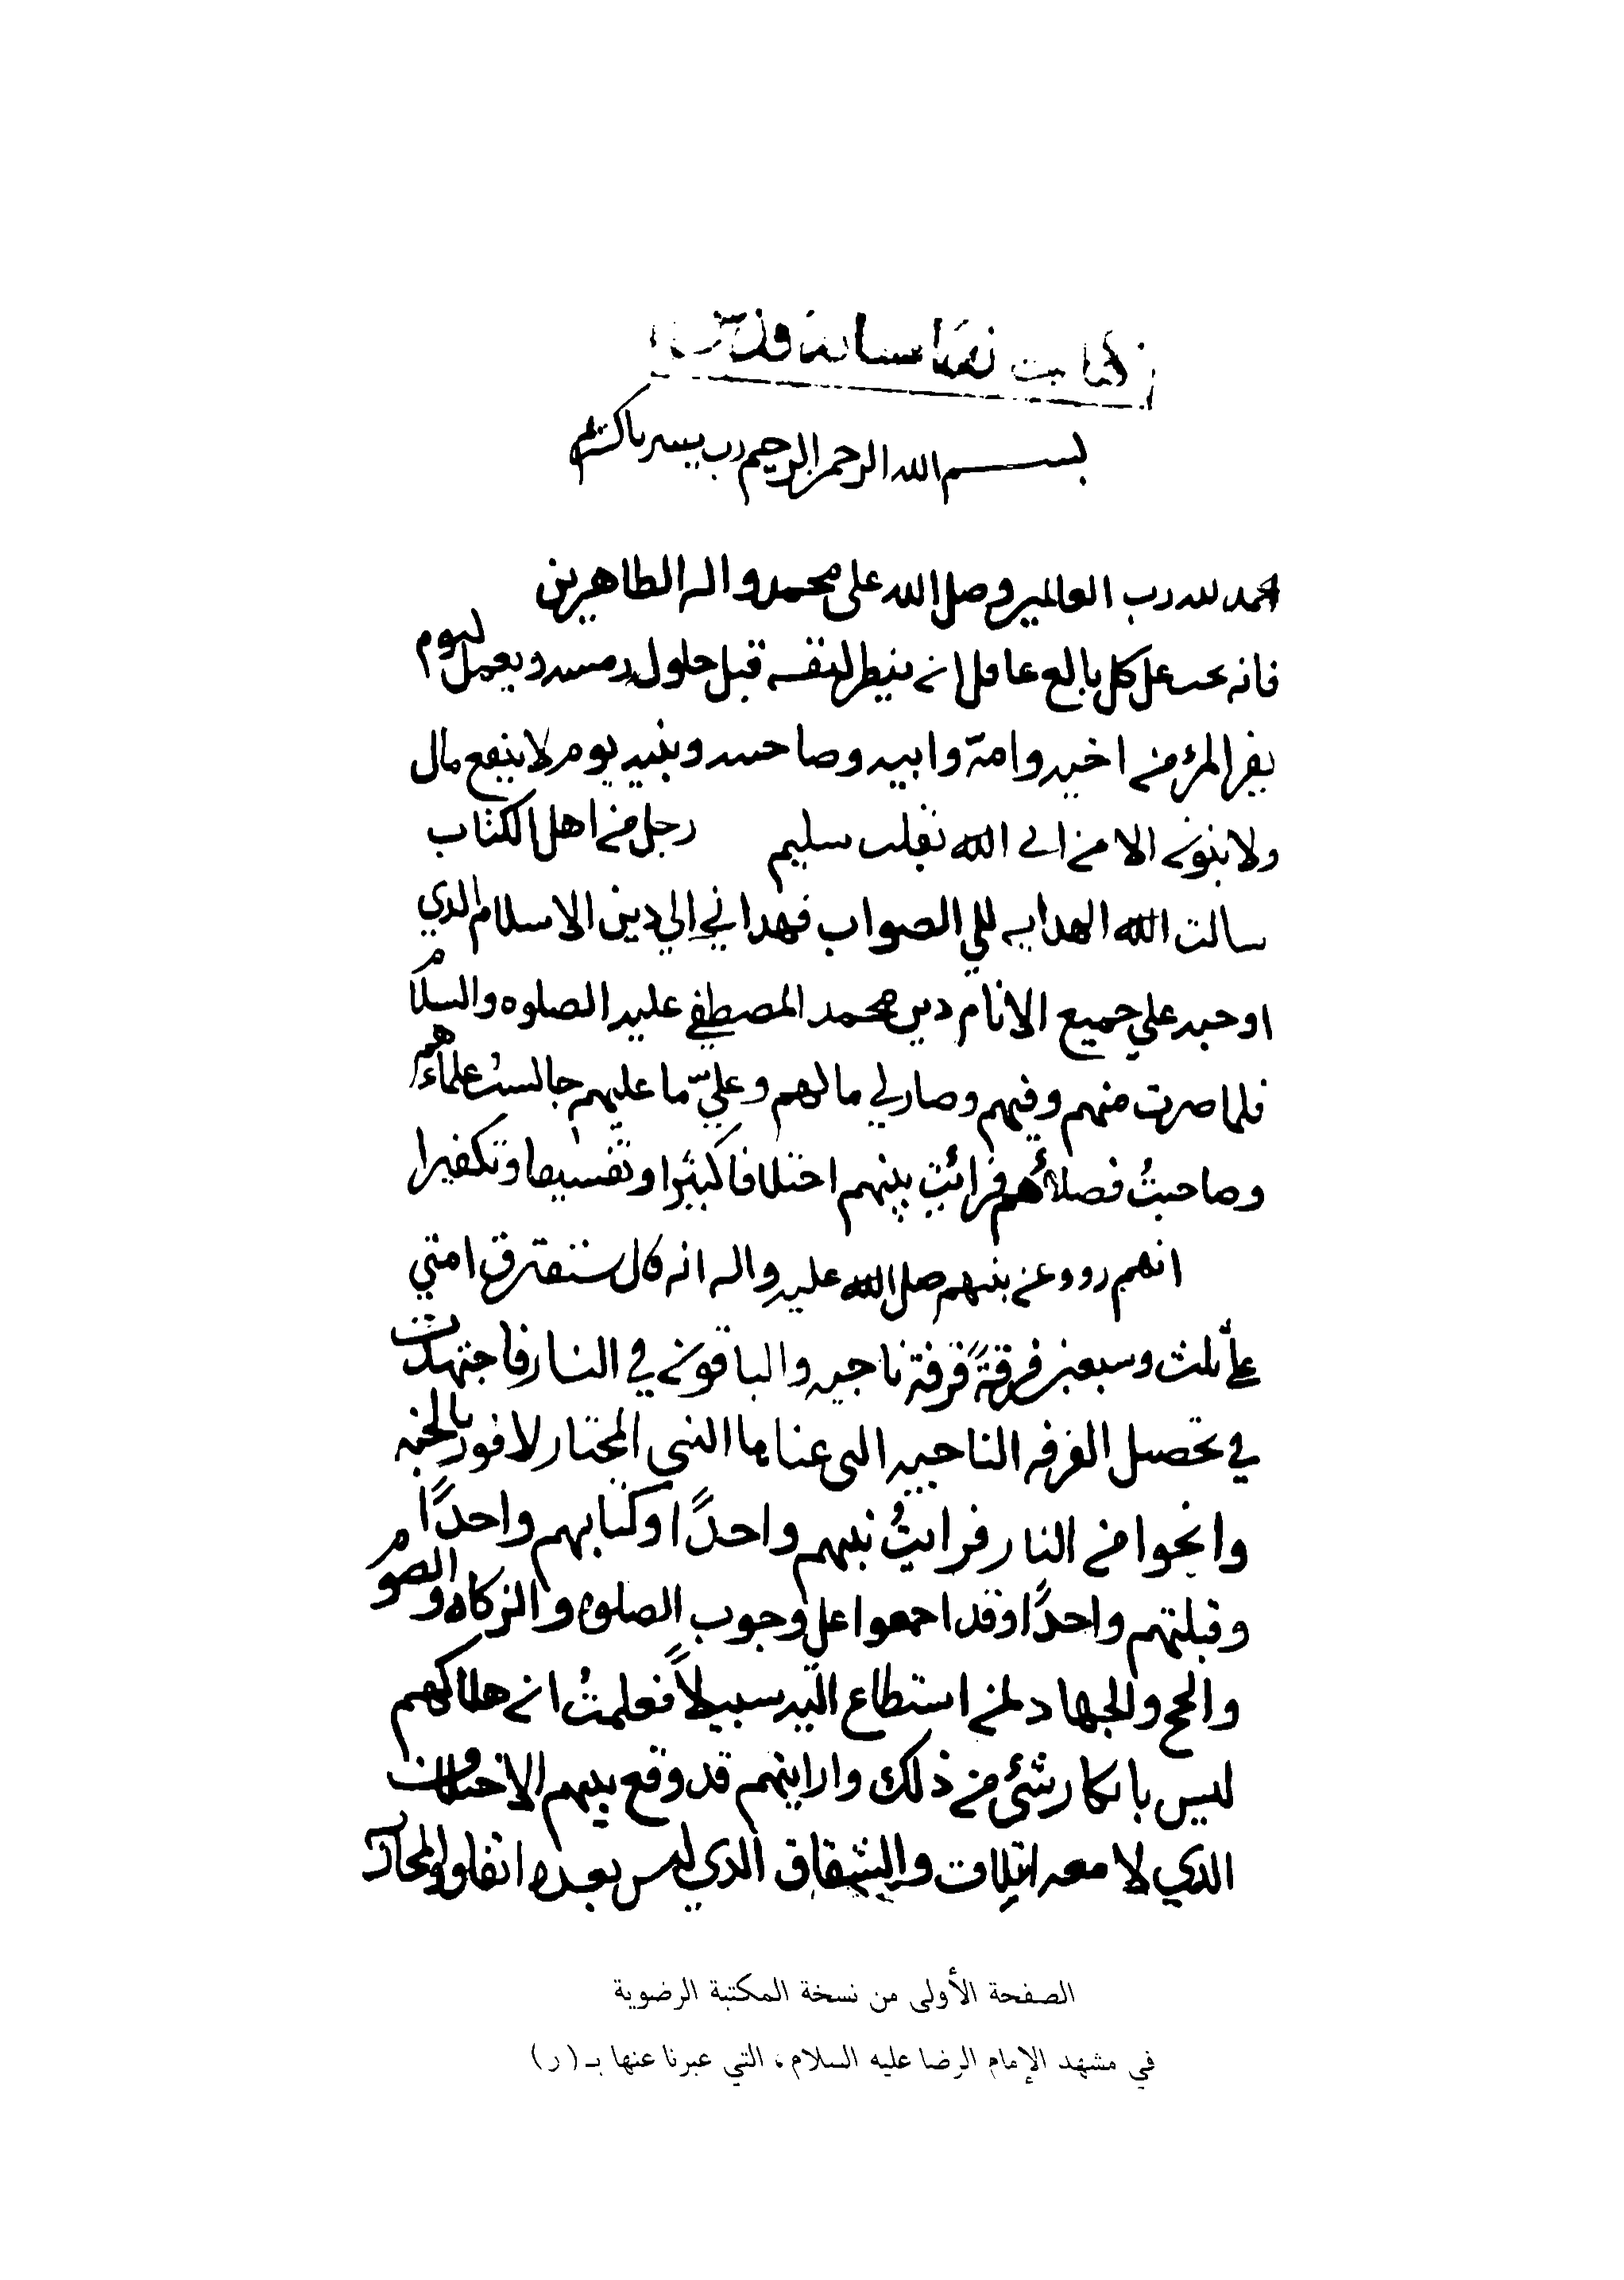 بسم الله الرحمن الرحيم رب يسر يا كريم
الحمد لله رب العالمين وصلى الله على محمد واله الطاهرين
فانه يجب على كل بالغ عاقل ان ينظر لنفسه قبل حلول رمسه ويعمل ليوم
يفر المرؤ من اخيه وامه وابيه وصاحبته وبنيه يوم لا ينفع مال
ولا بنون الا من اتى الله بقلب سليم رجل من اهل الكتاب
سالت الله الهدايه الي الصواب فهداني الي دين الاسلام الذي
اوجبه علي جميع الانام دين محمد المصطفي عليه الصلوه والسلام
فلما صرت منهم وفيهم وصار لي مالهم وعليّ ما عليهم جالستُ علماءهم
وصاحبتُ فضلائهم فرائت بينهم اختلافا كثيرا وتفسيقا وتكفيرا
انهم رووعن نبيهم صلى الله عليه واله انه قال ستفترق امتي
على ثلث وسبعين فرقةً فرقة ناجيه والباقون في النار فاجتهدت
في تحصيل الفرقه الناجيه التى عناها النبى المختار لافوز بالجنه
وانجوا من النار فرايتُ نبيهم واحدًا وكتابهم واحدًا
وقبلتهم واحدًا وقد اجمعوا على وجوب الصلوه والزكاه والصوم
والحج والجهاد لمن استطاع اليه سبيلاً فعلمتُ ان هلاكهم
ليس بانكار شئى من ذلك وارايتهم قد وقع بينهم الاختلاف
الذي لا معه ايتلاف والشقاق الذي ليس بعده اتفاق
الصفحة الأولى من نسخة المكتبة الرضوية
في مشهد الإمام الرضا عليه السلام، التي عبرنا عنها بـ (ر)